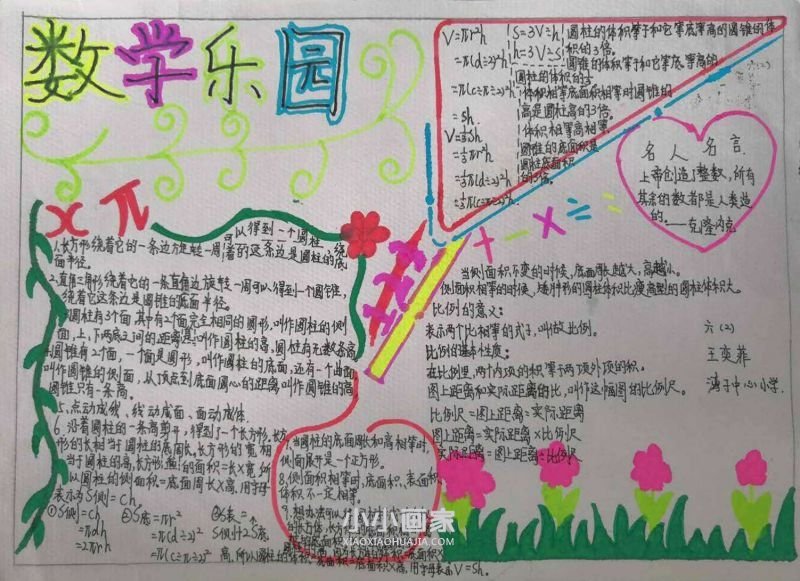 数学乐园
V=πr²h
=π(d÷2)²h
=π(c÷π÷2)²h
=Sh
V=⅓Sh
=⅓πr²h
=⅓π(d÷2)²h
=⅓π(c÷π÷2)²h
S=3V÷h
h=3V÷S
圆柱的体积等于和它等底等高的圆锥的体
积的3倍。
圆锥的体积等于和它等底等高的
圆柱的体积的⅓
体积相等底面积相等时圆锥的
高是圆柱高的3倍。
体积相等高相等,
圆锥的底面积是
圆柱底面积
的3倍。
六(2)
名人名言
上帝创造了整数,所有
其余的数都是人类造
的。——克隆内克
x π
+ - × ÷ =
1.长方形绕着它的一条边方旋转一周可以得到一个圆柱,绕
着的这条边是圆柱的底
面半径。
2.直角三角形绕着它的一条直角边旋转一周可以得到一个圆锥,
绕着它这条边是圆锥的底面半径。
圆柱有3个面,其中有2个面完全相同的圆形,叫作圆柱的侧
面,上、下两底之间的距离叫作圆柱的高。圆柱有无数条高
圆锥有2个面,一个面是圆形,叫作圆柱的底面,还有一个曲面
叫作圆锥的侧面,从顶点到底面圆心的距离叫作圆锥的高
圆锥只有一条高。
5.点动成线、线动成面、面动成体.
6.沿着圆柱的一条高剪开,得到了一个长方形,长方
形的长相当于圆柱的底周长,长方形的宽相
当于圆柱的高,长方形的面积=长×宽,所
以圆柱的侧面积=底面周长×高,用字母
表示为S侧=Ch.
①S侧=Ch
=πdh
=2πrh
②S底=πr²
=π(d÷2)²
=π(C÷π÷2)²
S表=
S侧+2S底
当圆柱的底面周长和高相等时,
侧面展开是一个正方形。
8.侧面积相等时,底面积,表面积,
体积不一定相等。
用字母表示V=Sh.
当侧面积不变的时候,底面周长越大,高越小。
侧面积相等的时候,矮胖形的圆柱体积比瘦高型的圆柱体积大。
比例的意义:
表示两个比相等的式子,叫做比例。
比例的基本性质:
在比例里,两个内项的积等于两项外项的积。
图上距离和实际距离的比,叫作这幅图的比例尺。
比例尺=图上距离÷实际距离
图上距离=实际距离×比例尺
实际距离=图上距离÷比例尺
六(2)
王奕菲
湾子中心小学.
小小画家
XIAOXIAOHUAJIA.COM